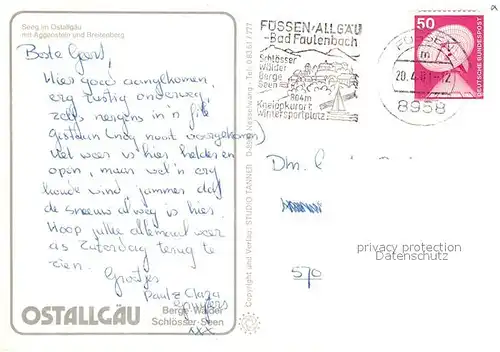 Seeg im Ostallgäu
mit Aggenstein und Breitenberg
Beste Geert,
Hier goed aangekomen,
erg rustig onderweg,
zelfs nergens in 'n file
gestaan (nog nooit voorgekomen)
Het weer is hier helder en
open, maar wel 'n erg
koude wind, jammer dat
de sneeuw al weg is hier.
Hoop jullie allemaal weer
as Zaterdag terug te
zien.
Groetjes
Paul & Clara
xxx
OSTALLGÄU
Berge-Wälder
Schlösser-Seen
Copyright und Verlag: STUDIO TANNER
FÜSSEN/ALLGÄU
-Bad Faulenbach
Schlösser
Wälder
Berge
Seen
804m
Kneippkurort
Wintersportplatz
FÜSSEN
8958
50
DEUTSCHE BUNDESPOST
570
privacy protection
Datenschutz